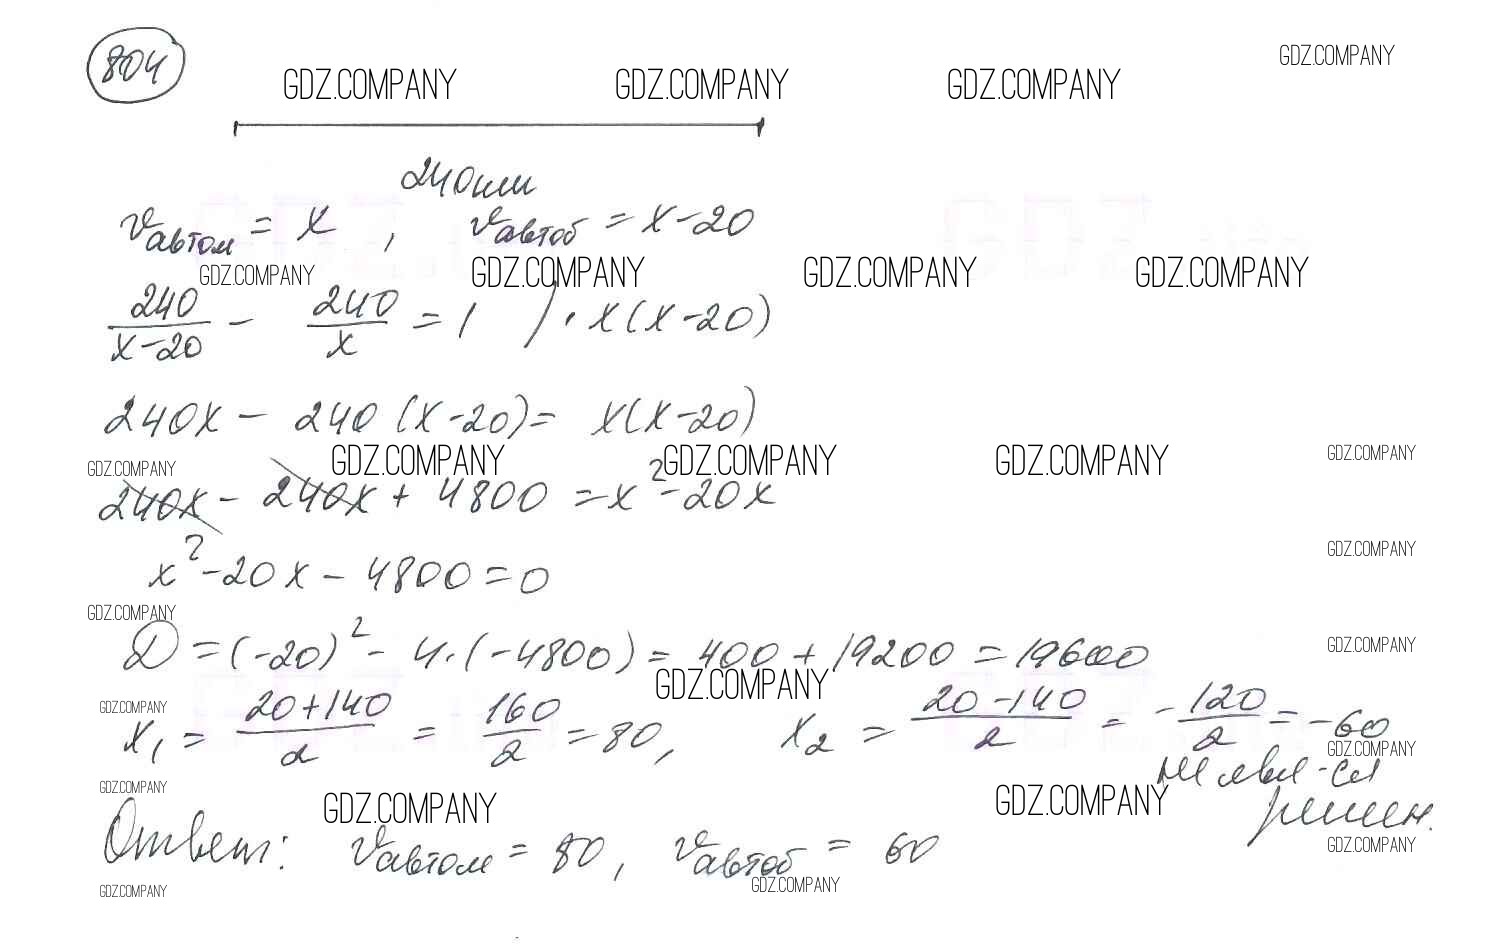 804
GDZ.COMPANY GDZ.COMPANY GDZ.COMPANY GDZ.COMPANY
240км
Vавтом = x , Vавтоб = x-20
GDZ.COMPANY GDZ.COMPANY GDZ.COMPANY GDZ.COMPANY
240/(x-20) - 240/x = 1 ) · x(x-20)
240x - 240(x-20) = x(x-20)
GDZ.COMPANY GDZ.COMPANY GDZ.COMPANY GDZ.COMPANY GDZ.COMPANY
240x - 240x + 4800 = x² - 20x
GDZ.COMPANY
x² - 20x - 4800 = 0
GDZ.COMPANY
D = (-20)² - 4·(-4800) = 400 + 19200 = 19600
GDZ.COMPANY
GDZ.COMPANY GDZ.COMPANY
x₁ = (20+140)/2 = 160/2 = 80, x₂ = (20-140)/2 = -120/2 = -60
GDZ.COMPANY
не явл-ся
GDZ.COMPANY GDZ.COMPANY GDZ.COMPANY
решен.
Ответ: Vавтом = 80, Vавтоб = 60
GDZ.COMPANY
GDZ.COMPANY GDZ.COMPANY